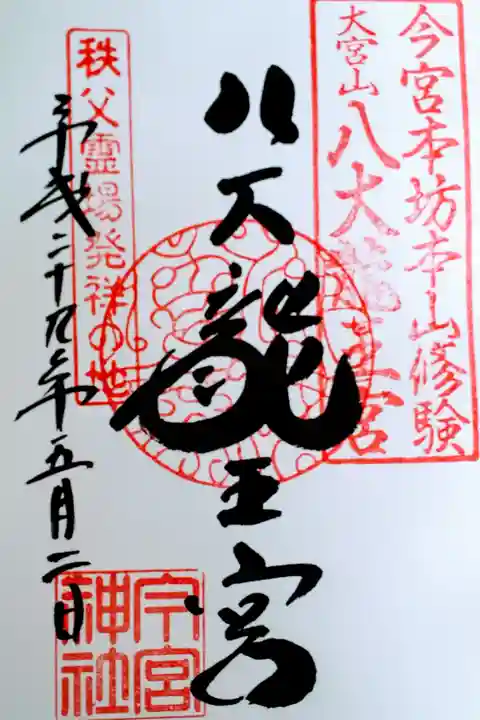 今宮本坊本山修験
大宮山
八大龍王宮
八大龍王宮
秩父霊場発祥の地
平成二十九年五月二日
今宮
神社